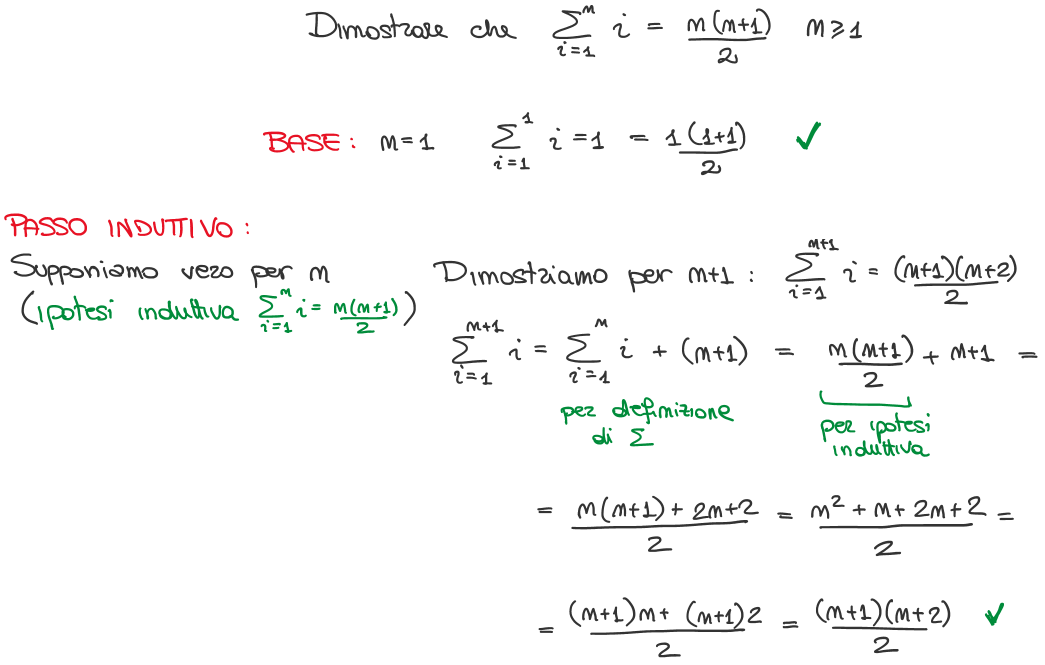 Dimostrare che $\sum_{i=1}^{n} i = \frac{n(n+1)}{2}$ n ≥ 1
BASE: n = 1 $\sum_{i=1}^{1} i = 1 = \frac{1(1+1)}{2}$ ✓
PASSO INDUTTIVO:
Supponiamo vero per n
(ipotesi induttiva $\sum_{i=1}^{n} i = \frac{n(n+1)}{2}$)
Dimostriamo per n+1 : $\sum_{i=1}^{n+1} i = \frac{(n+1)(n+2)}{2}$
$\sum_{i=1}^{n+1} i = \sum_{i=1}^{n} i + (n+1) = \frac{n(n+1)}{2} + n+1 =$
per definizione
di Σ
per ipotesi
induttiva
$= \frac{n(n+1) + 2n+2}{2} = \frac{n^2 + n + 2n + 2}{2} =$
$= \frac{(n+1)n + (n+1)2}{2} = \frac{(n+1)(n+2)}{2}$ ✓